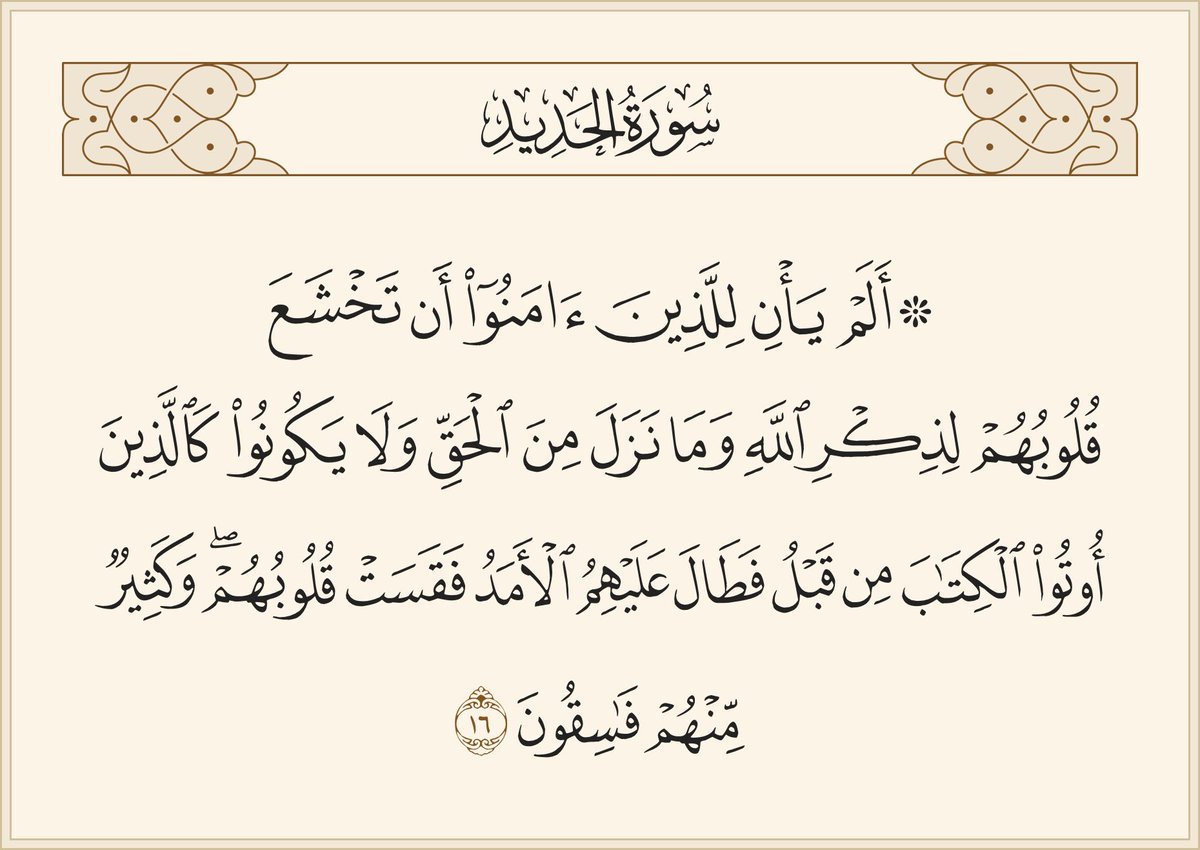 سُورَةُ الحَدِيدِ
۞ أَلَمۡ يَأۡنِ لِلَّذِينَ ءَامَنُوٓاْ أَن تَخۡشَعَ
قُلُوبُهُمۡ لِذِكۡرِ ٱللَّهِ وَمَا نَزَلَ مِنَ ٱلۡحَقِّ وَلَا يَكُونُواْ كَٱلَّذِينَ
أُوتُواْ ٱلۡكِتَٰبَ مِن قَبۡلُ فَطَالَ عَلَيۡهِمُ ٱلۡأَمَدُ فَقَسَتۡ قُلُوبُهُمۡۖ وَكَثِيرٞ
مِّنۡهُمۡ فَٰسِقُونَ ١٦